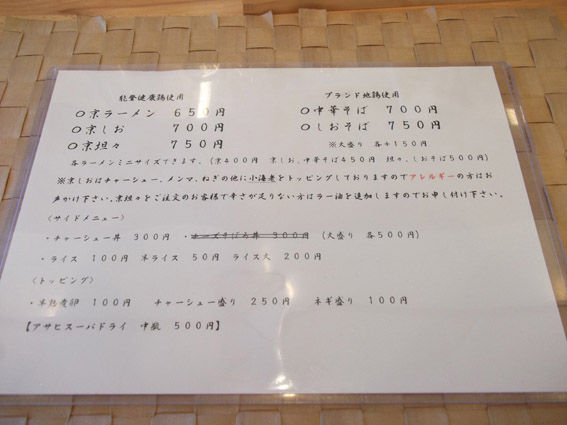 能登健康鶏使用
ブランド地鶏使用
○京ラーメン 650円
○中華そば 700円
○京しお 700円
○しおそば 750円
○京坦々 750円
※大盛り 各+150円
各ラーメンミニサイズできます。(京400円 京しお、中華そば450円 坦々、しおそば500円)
※京しおはチャーシュー、メンマ、ねぎの他に小海老をトッピングしておりますのでアレルギーの方はお
声かけ下さい。京坦々をご注文のお客様で辛さが足りない方はラー油を追加しますのでお申し付け下さい。
〈サイドメニュー〉
・チャーシュー丼 300円 ・チーズそぼろ丼 300円 (大盛り 各500円)
・ライス 100円 半ライス 50円 ライス大 200円
〈トッピング〉
・半熟煮卵 100円 チャーシュー盛り 250円 ネギ盛り 100円
【アサヒスーパドライ 中瓶 500円】